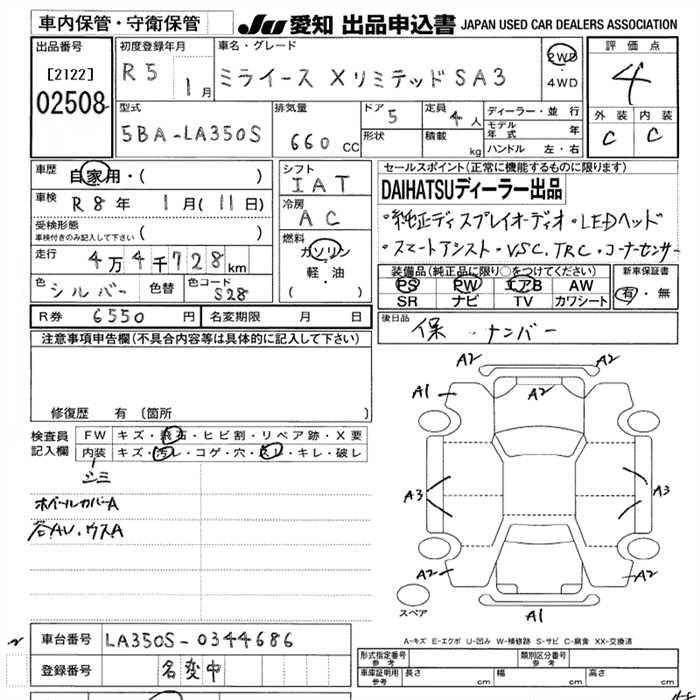 車内保管・守衛保管
JU 愛知 出品申込書 JAPAN USED CAR DEALERS ASSOCIATION
出品番号 [2122] 02508
初度登録年月 R5 1月
車名・グレード ミライース Xリミテッド SA3
2WD 4WD
評価点 4
外装 C 内装 C
型式 5BA-LA350S
排気量 660 CC
ドア 5
形状
定員 4人
積載 kg
ディーラー・並行
モデル年式 年
ハンドル 左・右
車歴 自家用・( )
車検 R8年 1月(11日)
受検形態 車検付きのみ記入して下さい ( )
走行 4万4千728km
色 シルバー 色替 色コード S28
シフト IAT
冷房 AC
燃料 ガソリン 軽・油 ( )
R券 6550円 名変期限 月 日
セールスポイント(正常に機能するものに限ります)
DAIHATSUディーラー出品
・純正ディスプレイオーディオ・LEDヘッド
・スマートアシスト・VSC.TRC.コーナーセンサー
装備品(純正品に限り○をつけてください)
PS PW エアB AW
SR ナビ TV カワシート
新車保証書 有・無
後日品 保・ナンバー
注意事項申告欄(不具合内容等は具体的に記入して下さい)
修復歴 有(箇所 )
検査員記入欄
FW キズ・飛石・ヒビ割・リペア跡・X要
内装 キズ・汚レ・コゲ・穴・スレ・キレ・破レ
シミ
ホイールカバーA
各AU.ウスA
A2 A2
A1 A2
A3 A3
A2 A2
スペア A1
A-キズ E-エクボ U-凹み W-補修跡 S-サビ C-腐食 XX-交換済
車台番号 LA350S-0344686
登録番号 名変中
形式指定番号 参考 類別区分番号 参考
車庫証明用 参考 長さ cm 幅 cm 高さ cm